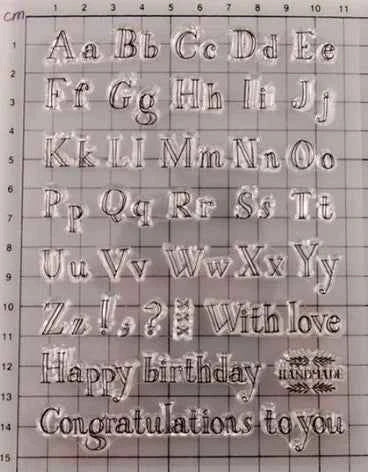 cm 1 2 3 4 5 6 7 8 9 10 11
1 Aa Bb Cc Dd Ee
3 Ff Gg Hh Ii Jj
4
5 Kk Ll Mm Nn Oo
6
7 Pp Qq Rr Ss Tt
8
9 Uu Vv Ww Xx Yy
10 Zz ! , ? With love
11
12 Happy birthday HANDMADE
13
14 Congratulations to you
15